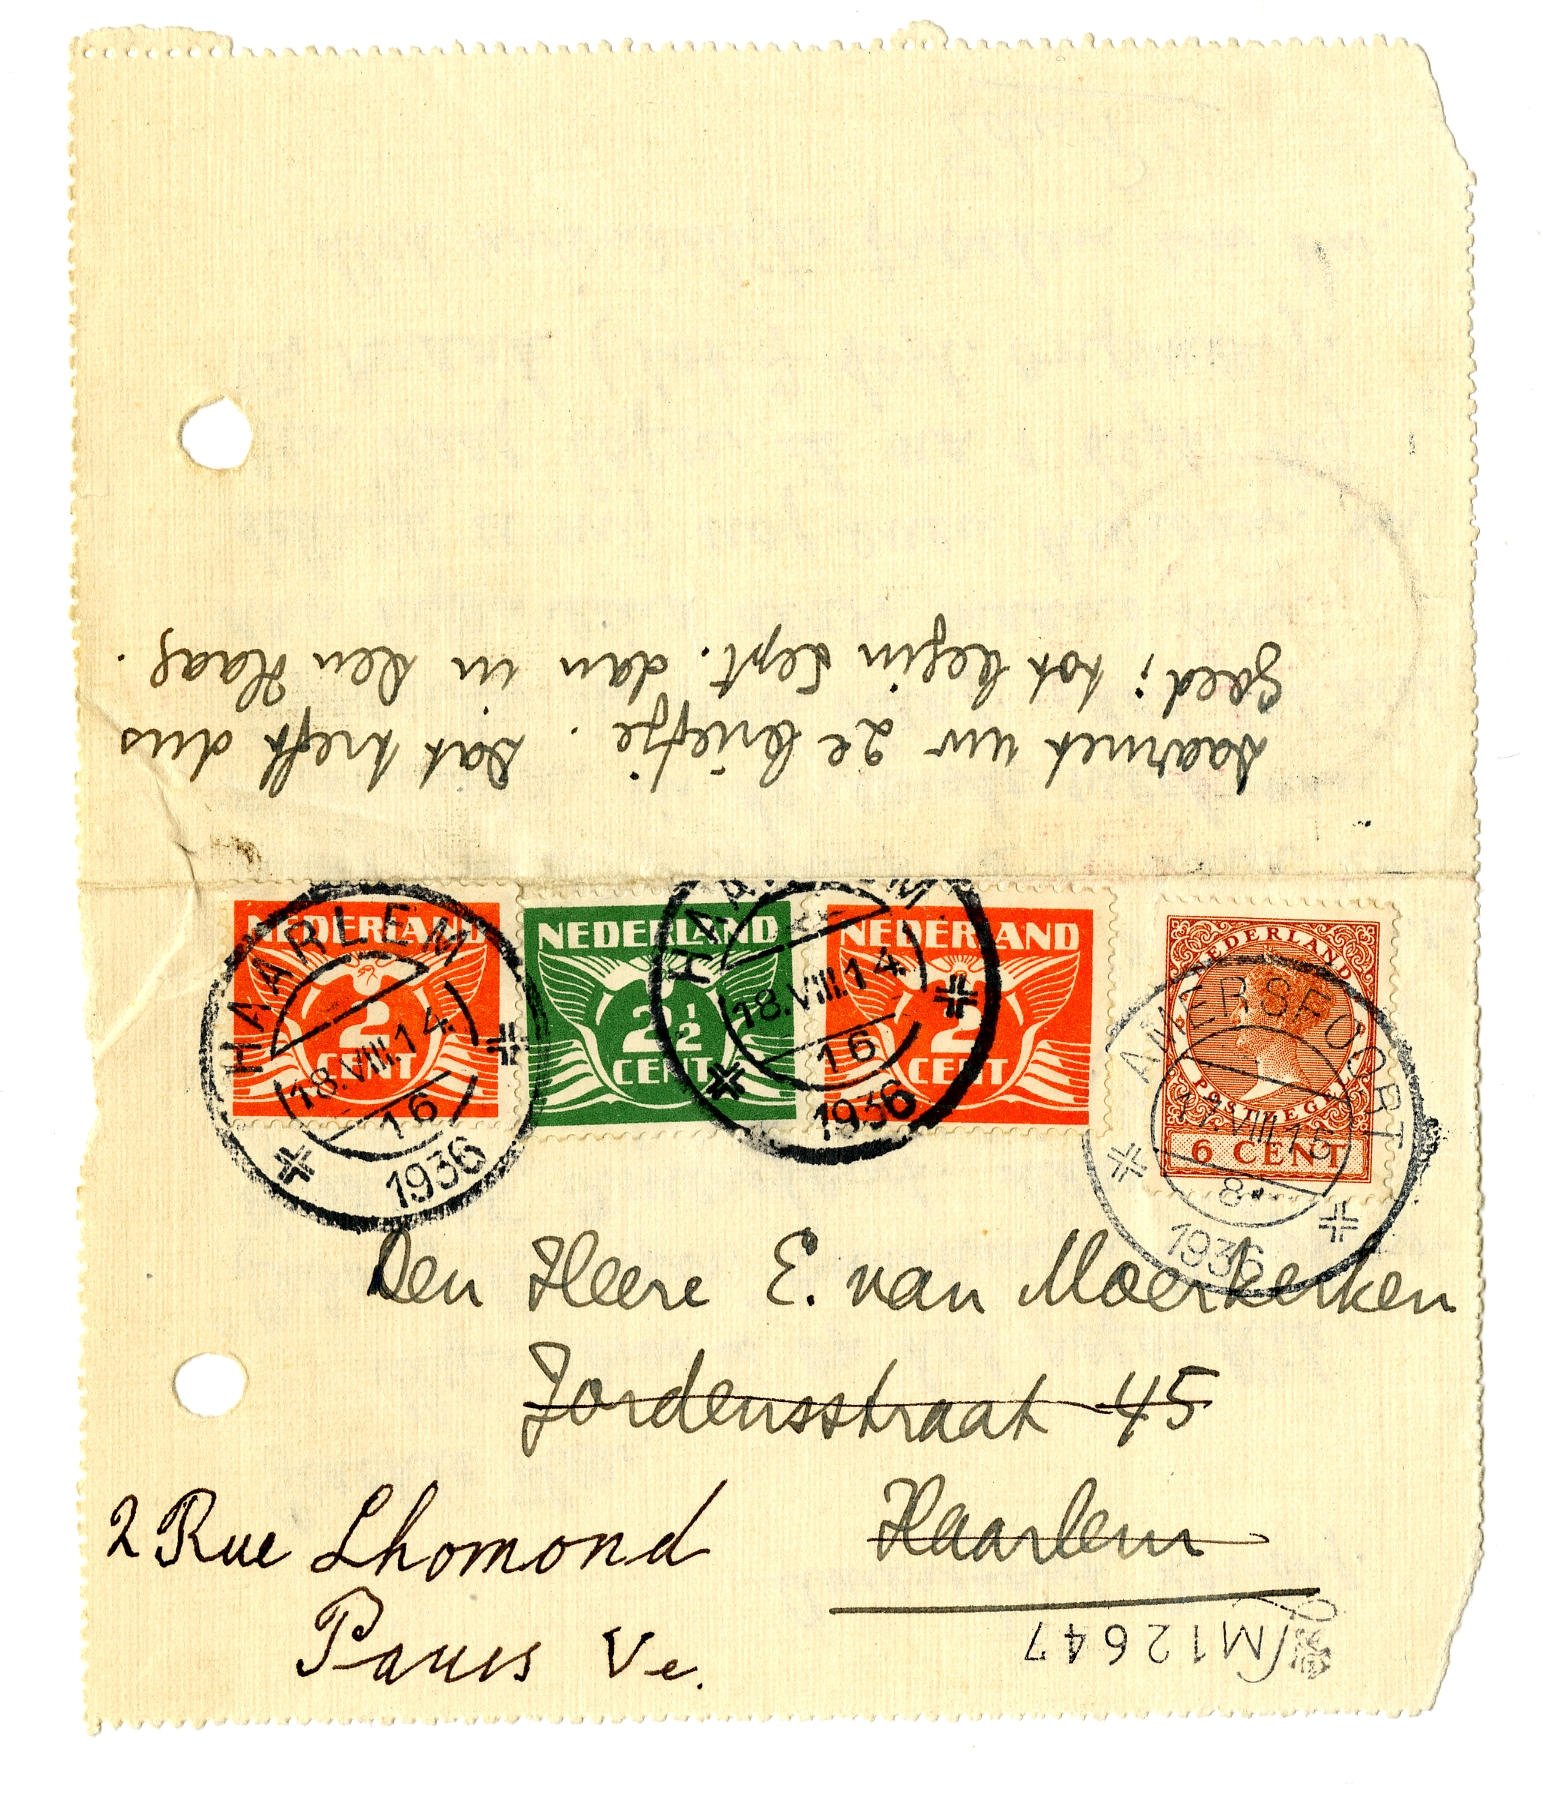 daarnet uw 2e briefje. Dat treft dus
goed; tot begin Sept. dan in Den Haag.
NEDERLAND
2
CENT
NEDERLAND
2½
CENT
NEDERLAND
2
CENT
NEDERLAND
POSTZEGEL
6 CENT
HAARLEM
18.VIII.14
16
1936
HAARLEM
18.VIII.14
16
1936
AMERSFOORT
17.VIII.15
8
1936
Den Heere E. van Moerkerken
Jordensstraat 45
Haarlem
2 Rue Lhomond
Paris Ve.
M12647